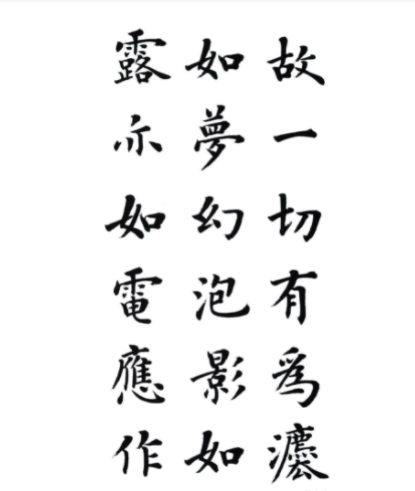 故一切有為灋
如夢幻泡影如
露亦如電應作